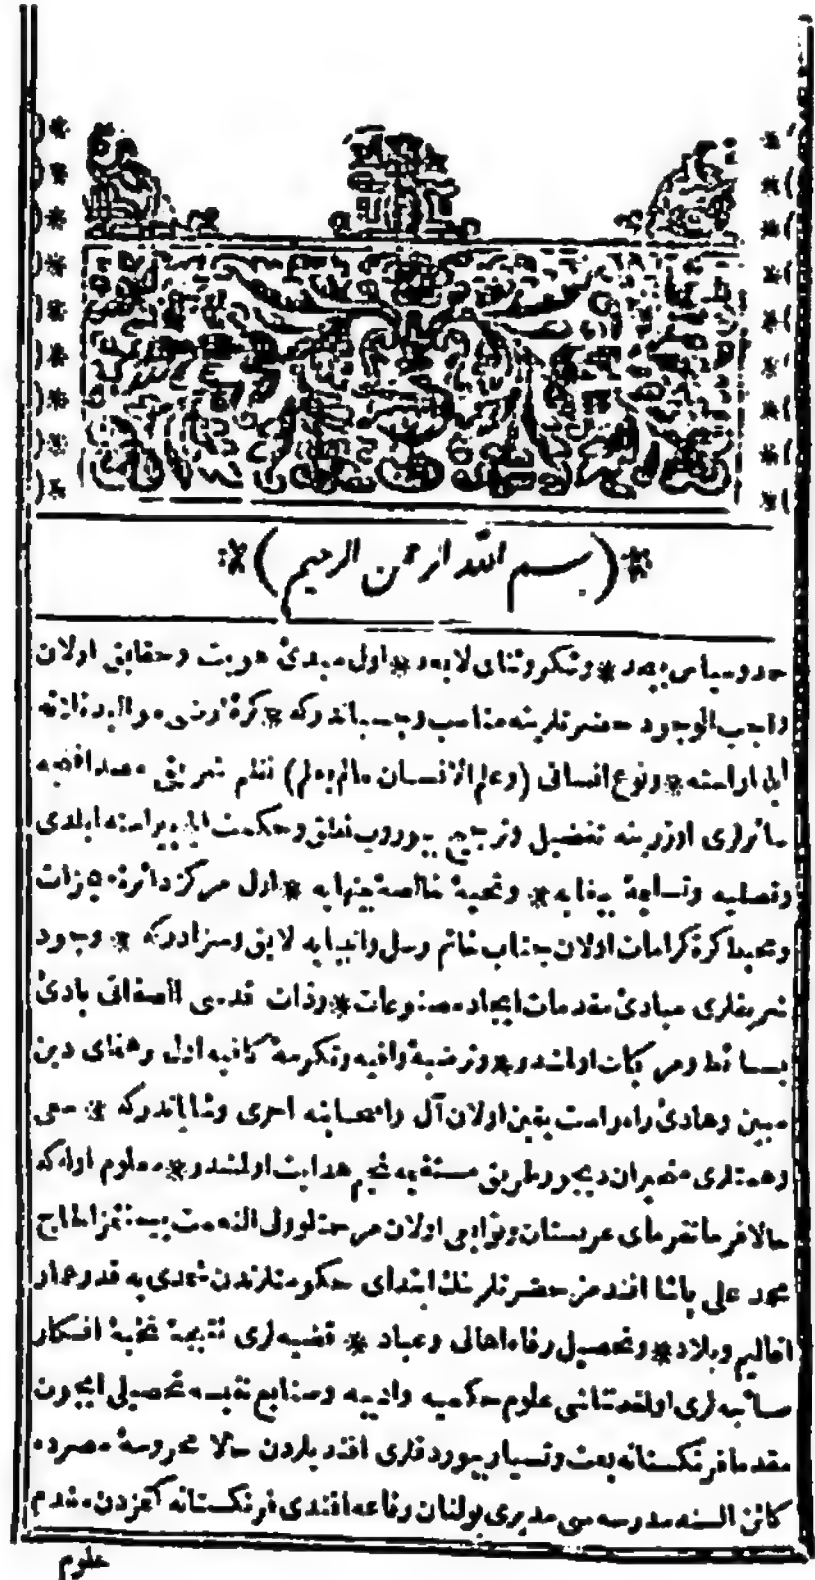 *(بسم الله الرحمن الرحيم)*
حمد وسپاس بیعد * وشکر وثنای لایعد * اول مبدئ هویت وحقایق اولان
واجب الوجود حضرتلرینه مناسب وچسباندرکه * کرهٔ ارضی موالید ثلاثه
ایله اراسته * ونوع انسانی (وعلم الانسان مالم یعلم) نظم شریفی مصداقنجه
سائرلری اوزرینه تفضیل وترجیح بیوروب نطق وحکمت ایله پیراسته ایلدی
وتصلیه وتسلیمهٔ بیغایه * وتحیهٔ خالصهٔ بینهایه * اول مرکز دائرهٔ معجزات
ومحیط کرهٔ کرامات اولان جناب خاتم رسل وانبیایه لایق وسزادرکه * وجود
شریفلری مبادئ مقدمات ایجاد مصنوعات * وذات قدسی الصفاتی بادئ
بسائط ومرکبات اولمشدر * وترضیهٔ وافیه وتکرمهٔ کافیه اول رهنمای دین
مبین وهادئ راه راست یقین اولان آل واصحابنه احری وشایاندرکه * سعی
وهمتلری متحیران دیجور طریق مستقیمه نجم هدایت اولمشدر * معلوم اوله که
حالا فرمانفرمای عربستان ونوابی اولان مرحمتلو ولی النعمت بیمنتمز الحاج
محمد علی پاشا افندمز حضرتلرینك ابتدای حکومتلرندن شمدی یه قدر عمار
اقالیم وبلاد * وتحصیل رفاه اهالی وعباد * قضیه لری نتیجهٔ نخبهٔ افکار
صائبه لری اولمقدن ناشی علوم حکمیه وادبیه وصنایع نفیسه تحصیلی ایچون
مقدما فرنکستانه بعث وتسیار بیوردقلری افندیلردن حالا محروسهٔ مصرده
کائن السنه مدرسه سی مدیری بولنان رفاعه افندی فرنکستانه کتمزدن مقدم
علوم